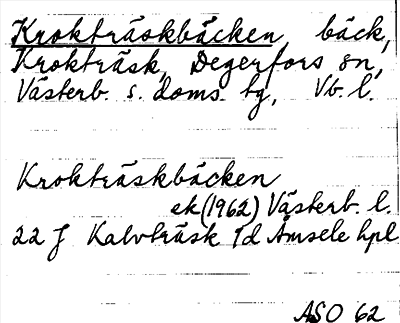 Krokträskbäcken bäck,
Krokträsk, Degerfors sn,
Västerb. s. doms. tg, Vb. l.
Krokträskbäcken
ek (1962) Västerb. l.
22 J Kalvträsk 1d Åmsele hpl
ASO 62